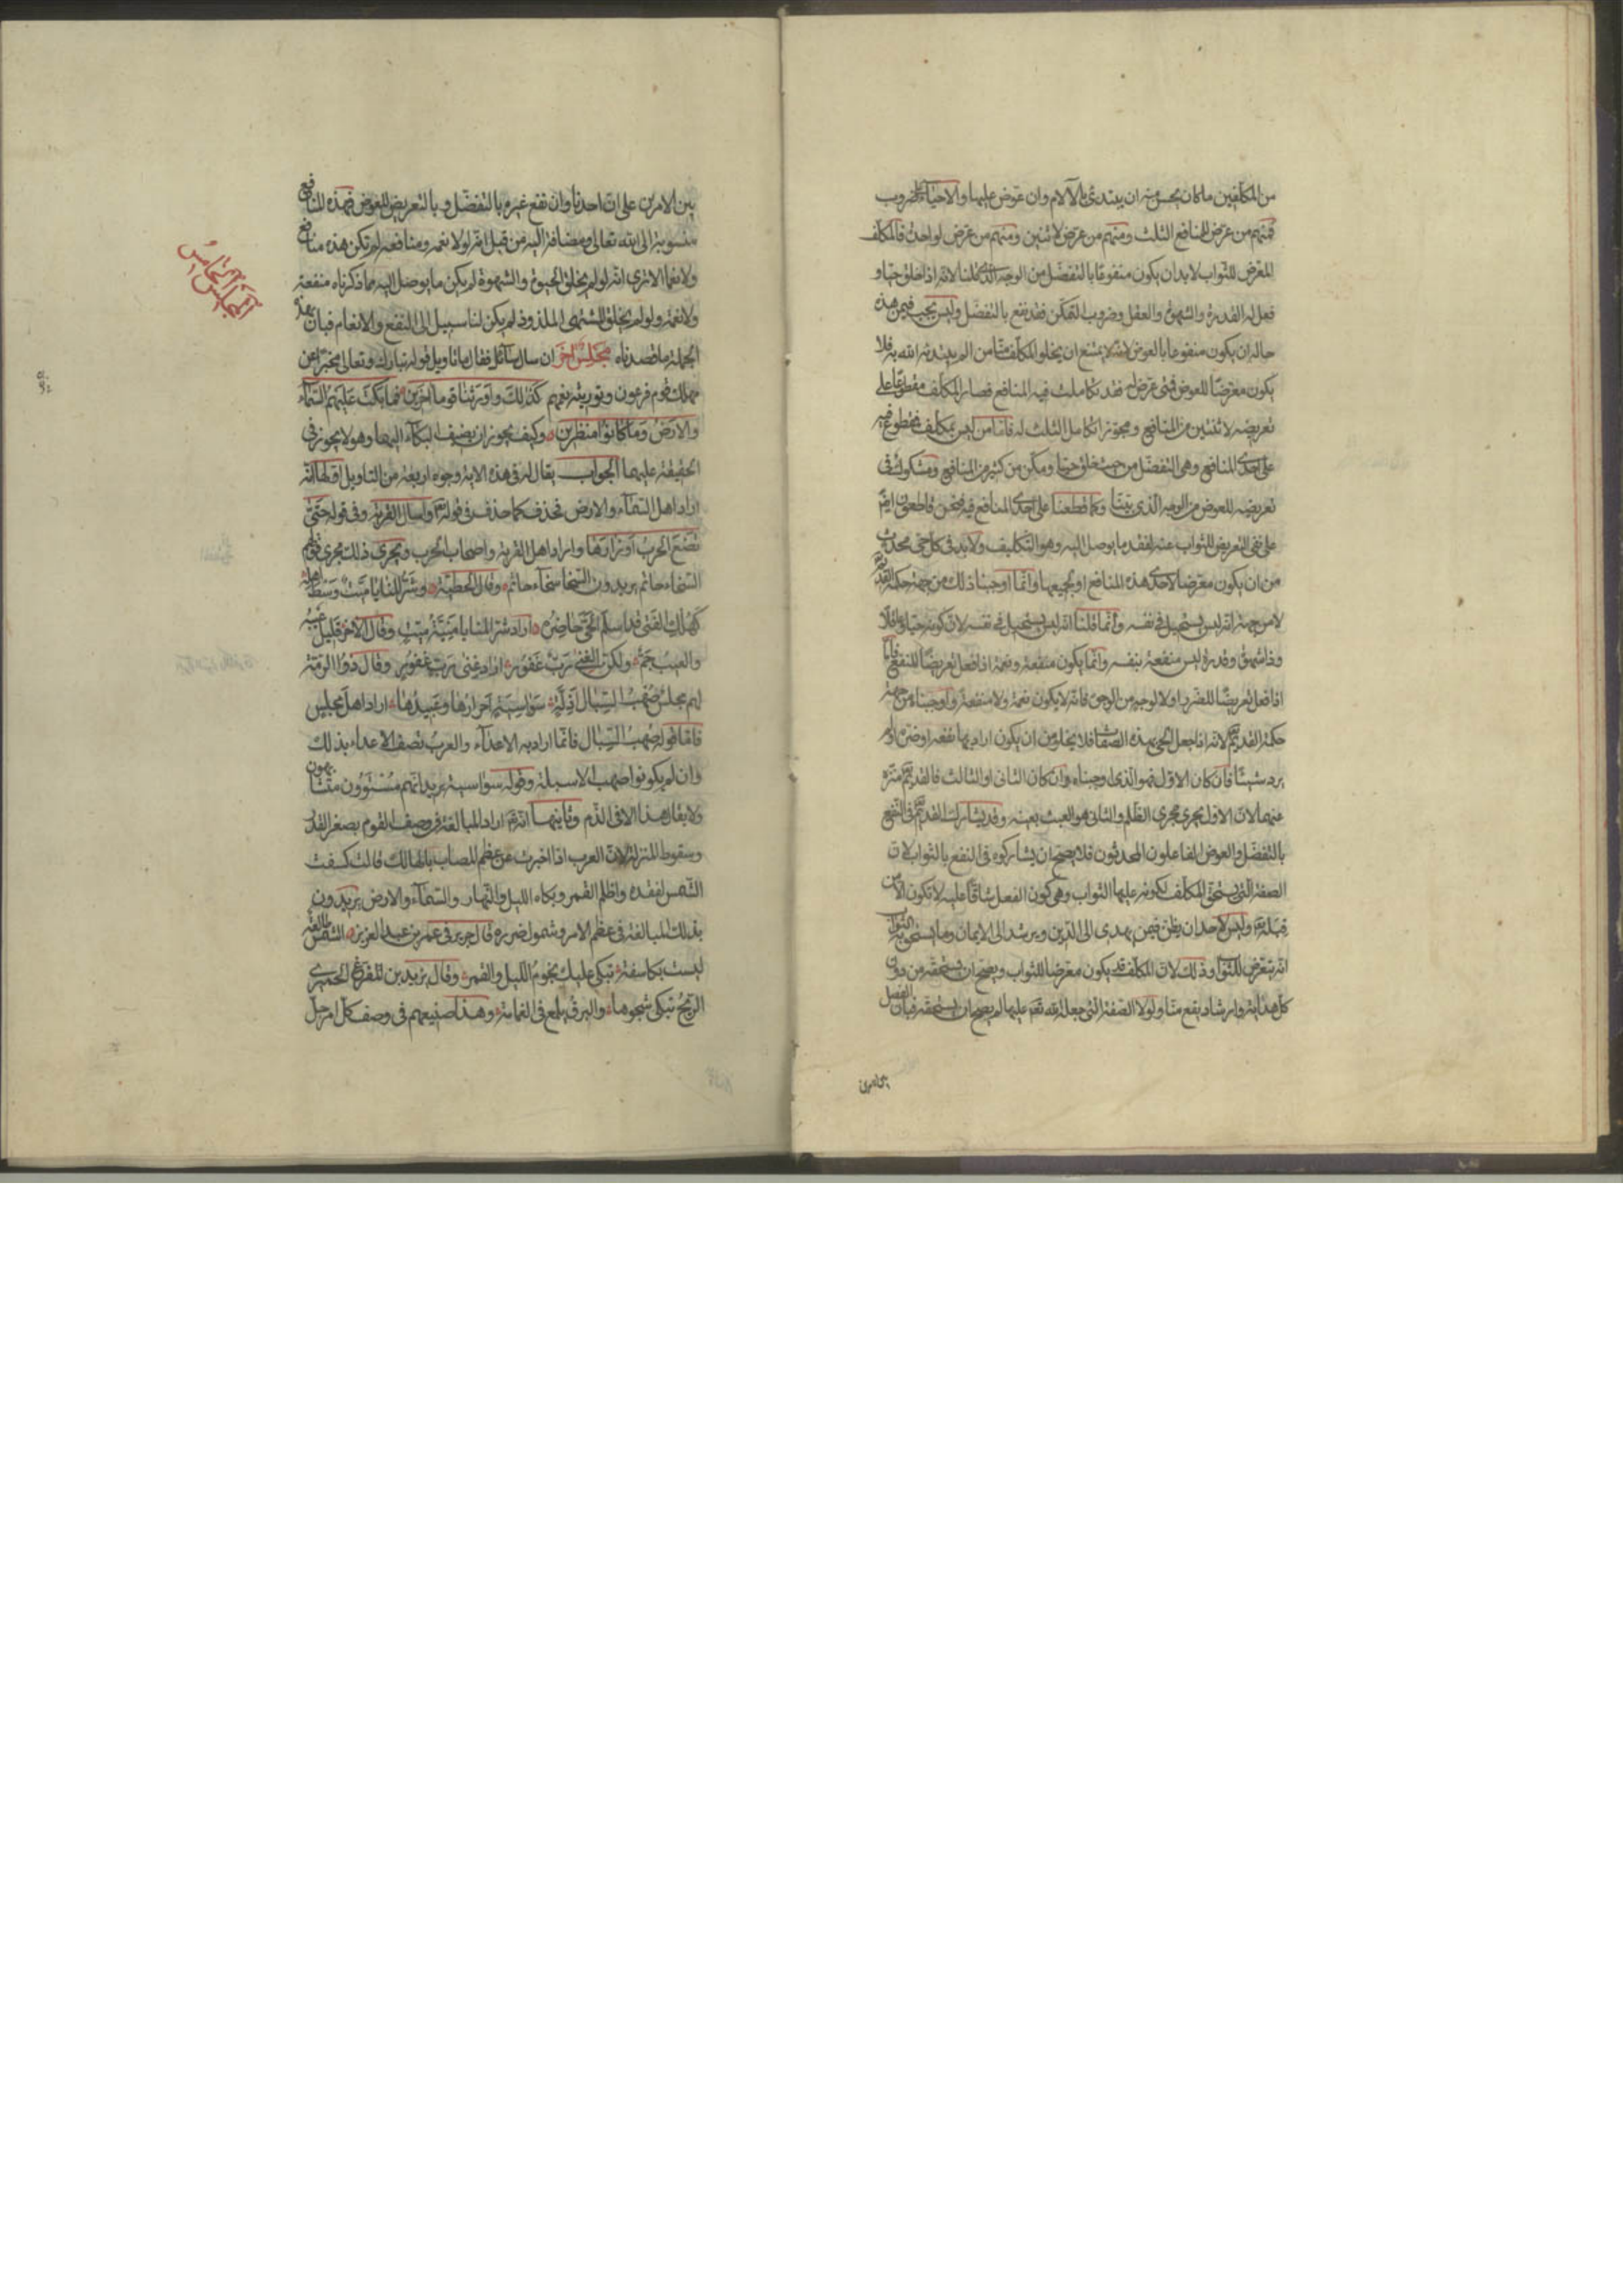 من المكلفين ما كان يحسن منه ان يبتدئ بالآلام وان عوض عليها والاحياء على ضروب
فمنهم من عرض للمنافع الثلث ومنهم من عرض لاثنين ومنهم من عرض لواحدة فالمكلف
المعرض للثواب لا بد ان يكون منفوعا بالتفضل من الوجه الذي قلنا لانه اذا خلق حيا و
فعل له القدرة والشهوة والعقل وضروب التمكن فقد نفع بالتفضل وليس يجب فيمن هذه
حاله ان يكون منفوعا بالعوض لانه لا يمتنع ان يخلو المكلف منا من الم يبتدئه الله به فلا
يكون معرضا للعوض فمتى عرض له فقد تكاملت فيه المنافع فصار المكلف مقطوعا على
تعريضه لاثنتين من المنافع ومجوزا تكامل الثلث له فاما من ليس بمكلف فمقطوع فيه
على احدى المنافع وهي التفضل من حيث خلق حيا ومكن من كثير من المنافع ومشكوك في
تعريضه للعوض من الوجه الذي بينا وكما قطعنا على احدى المنافع فيه فنحن قاطعون ايضا
على نفي التعريض للثواب عنه لفقد ما يوصل اليه وهو التكليف ولا بد في كل حي محدث
من ان يكون معرضا لاحدى هذه المنافع او لجميعها وانما اوجبنا ذلك من جهة حكمة القديم
لا من جهة انه ليس يستحيل في نفسه وانما قلنا انه ليس يستحيل في نفسه لان كونه حيا وعاقلا
وذا شهوة وقدرة ليس منفعة بنفسه وانما يكون منفعة ونعمة اذا فعل تعريضا للنفع فاما
اذا فعل تعريضا للضرر او لا لوجه من الوجوه فانه لا يكون نعمة ولا منفعة واوجبناه من جهة
حكمة القديم لانه اذا جعل الحي بهذه الصفات فلا يخلو من ان يكون اراد بها نفعه او ضره او لم
يرد شيئا فان كان الاول فهو الذي اوجبناه وان كان الثاني او الثالث فالقديم منزه
عنهما لان الاول يجري مجرى الظلم والثاني هو العبث بعينه وقد يشارك القديم في النفع
بالتفضل والعوض الفاعلون المحدثون فلا يصح ان يشاركوه في النفع بالثواب لان
الصفة التي يستحق المكلف لكونه عليها الثواب وهي كون الفعل شاقا عليه لا تكون الا من
قبله وليس لاحد ان يظن فيمن يهدي الى الدين ويرشد الى الايمان وما يستحق به الثواب
انه يتعرض للثواب وذلك لان المكلف قد يكون معرضا للثواب ويصح ان يستحقه من دون
كل هداية وارشاد يقع منا ولولا الصفة التي جعله الله عليها لم يصح ان يستحقه فبان الفصل
بين الامرين
بين الامرين على ان احدنا وان نفع غيره بالتفضل وبالتعريض للعوض فهذه المنافع
منسوبة الى الله تعالى ومضافة اليه من قبل انه لولا نعمه ومنافعه لم تكن هذه منافع
ولا نعما الا ترى انه لو لم يخلق الحيوة والشهوة لم يكن ما يوصل اليه مما ذكرناه منفعة
ولا نعمة ولو لم يخلق المشتهى الملذوذ لم يكن لنا سبيل الى النفع والانعام فبان بهذه
الجملة ما قصدناه مجلس آخر ان سال سائل فقال ما تاويل قوله تبارك وتعالى مخبرا عن
مهلك قوم فرعون وتوريثه نعمهم كذلك واورثناها قوما آخرين فما بكت عليهم السماء
والارض وما كانوا منظرين وكيف يجوز ان يضيف البكاء اليهما وهو لا يجوز في
الحقيقة عليهما الجواب يقال له في هذه الاية وجوه اربعة من التاويل اولها انه
اراد اهل السماء والارض فحذف كما حذف في قوله واسال القرية وفي قوله حتى
تضع الحرب اوزارها واراد اهل القرية واصحاب الحرب ويجري ذلك مجرى قولهم
السخاء حاتم يريدون السخاء سخاء حاتم وقال الحطيئة وشر المنايا ميت وسط اهله
كهلك الفتى قد اسلم الحي حاضره اراد شر المنايا منية ميت وقال الآخر قليل عيبه
والعيب جم ولكن الغنى رب غفور اراد غنى رب غفور وقال ذو الرمة
لهم مجلس صهب السبال اذلة سواسية احرارها وعبيدها اراد اهل مجلس
فاما قوله صهب السبال فانما اراد به الاعداء والعرب تصف الاعداء بذلك
وان لم يكونوا صهب الاسبلة وقوله سواسية يريد انهم مستوون متشابهون
ولا يقال هذا الا في الذم وثانيهما انه اراد المبالغة في وصف القوم بصغر القدر
وسقوط المنزلة لان العرب اذا اخبرت عن عظم المصاب بالهالك قالت كسفت
الشمس لفقده واظلم القمر وبكاه الليل والنهار والسماء والارض يريدون
بذلك المبالغة في عظم الامر وشمول ضرره قال جرير في عمر بن عبد العزيز الشمس طالعة
ليست بكاسفة تبكي عليك نجوم الليل والقمرا وقال يزيد بن المفرغ الحميري
الريح تبكي شجوها والبرق يلمع في الغمامة وهذا صنيعهم في وصف كل امر جل